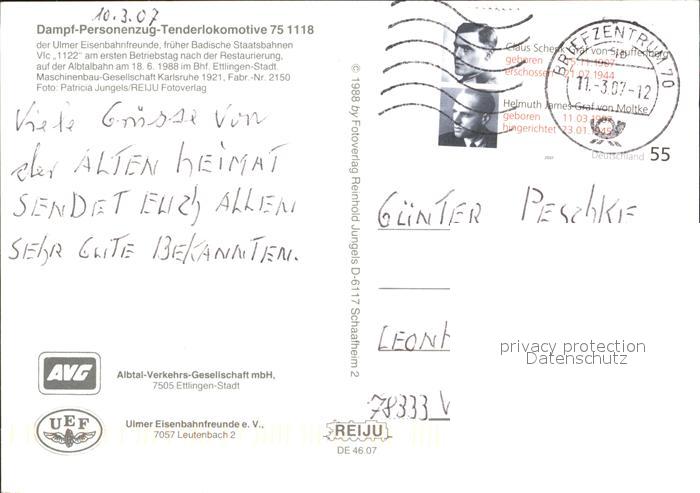 10.3.07
Dampf-Personenzug-Tenderlokomotive 75 1118
der Ulmer Eisenbahnfreunde, früher Badische Staatsbahnen
VIc „1122” am ersten Betriebstag nach der Restaurierung,
auf der Albtalbahn am 18. 6. 1988 im Bhf. Ettlingen-Stadt.
Maschinenbau-Gesellschaft Karlsruhe 1921, Fabr.-Nr. 2150
Foto: Patricia Jungels/REIJU Fotoverlag
Viele Grüsse von
der ALTEN HEIMAT
SENDET EUch ALLEN
SEhR GUTE BEKANNTEN.
AVG
Albtal-Verkehrs-Gesellschaft mbH,
7505 Ettlingen-Stadt
UEF
Ulmer Eisenbahnfreunde e. V.,
7057 Leutenbach 2
© 1988 by Fotoverlag Reinhold Jungels D-6117 Schaafheim 2
REIJU
DE 46.07
Claus Schenk Graf von Stauffenberg
geboren 15.11.1907
erschossen 21.07.1944
Helmuth James Graf von Moltke
geboren 11.03.1907
hingerichtet 23.01.1945
Deutschland 55
BRIEFZENTRUM 70
11.-3.07-12
GÜNTER PESCHKE
LEONH
78333 V
privacy protection
Datenschutz